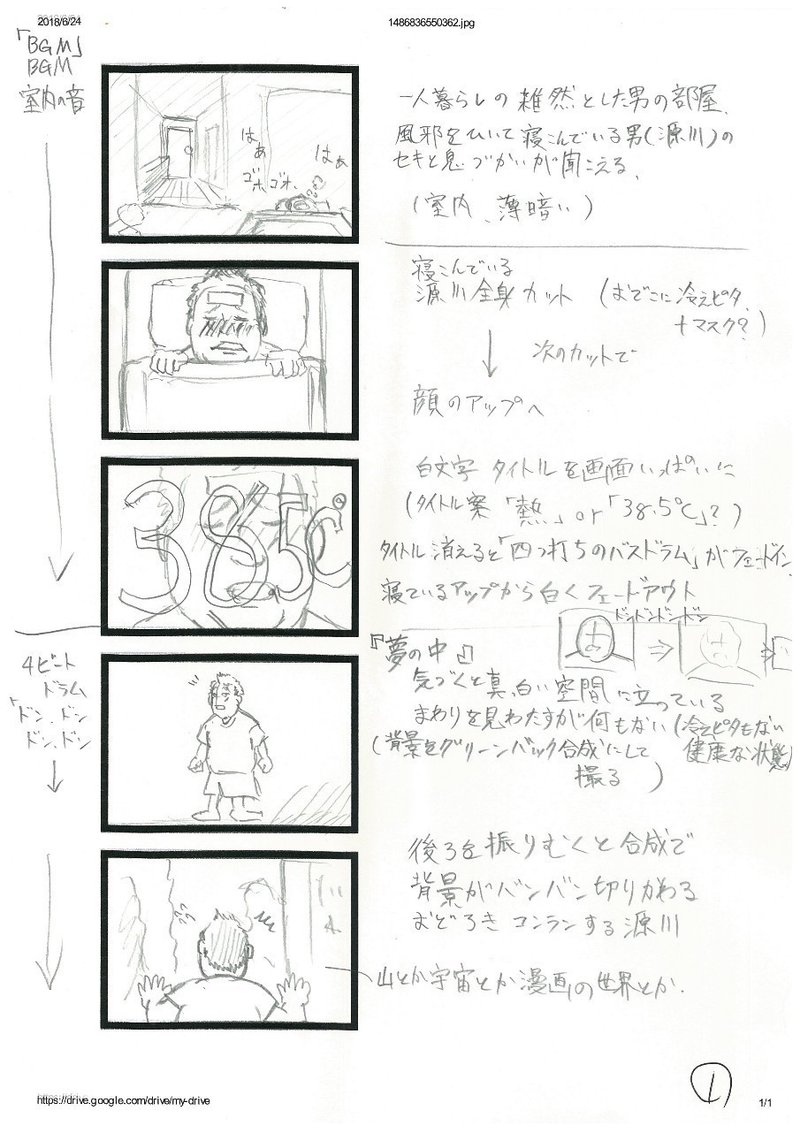 2018/6/24
1486836550362.jpg
「BGM」
BGM
室内の音
一人暮らしの雑然とした男の部屋、
風邪をひいて寝こんでいる男(源川)の
セキと息づかいが聞こえる、
(室内、薄暗い)
はぁ
はぁ
ゴホ、ゴホ、
寝こんでいる
源川全身カット (おでこに冷えピタ、
+マスク?)
次のカットで
顔のアップへ
白文字 タイトルを画面いっぱいに
(タイトル案「熱」or「38.5℃」?)
タイトル消えると「四つ打ちのバスドラム」がフェードイン
寝ているアップから白くフェードアウト
38.5℃
ドンドンドンドン
4ビート
ドラム
「ドン、ドン
ドン、ドン
『夢の中』
気づくと真、白い空間に立っている
まわりを見わたすが何もない(冷えピタもない
健康な状態)
(背景をグリーンバック合成にして
撮る)
後ろを振りむくと合成で
背景がバンバン切りかわる
おどろきコンランする源川
山とか宇宙とか漫画の世界とか.
①
https://drive.google.com/drive/my-drive
1/1